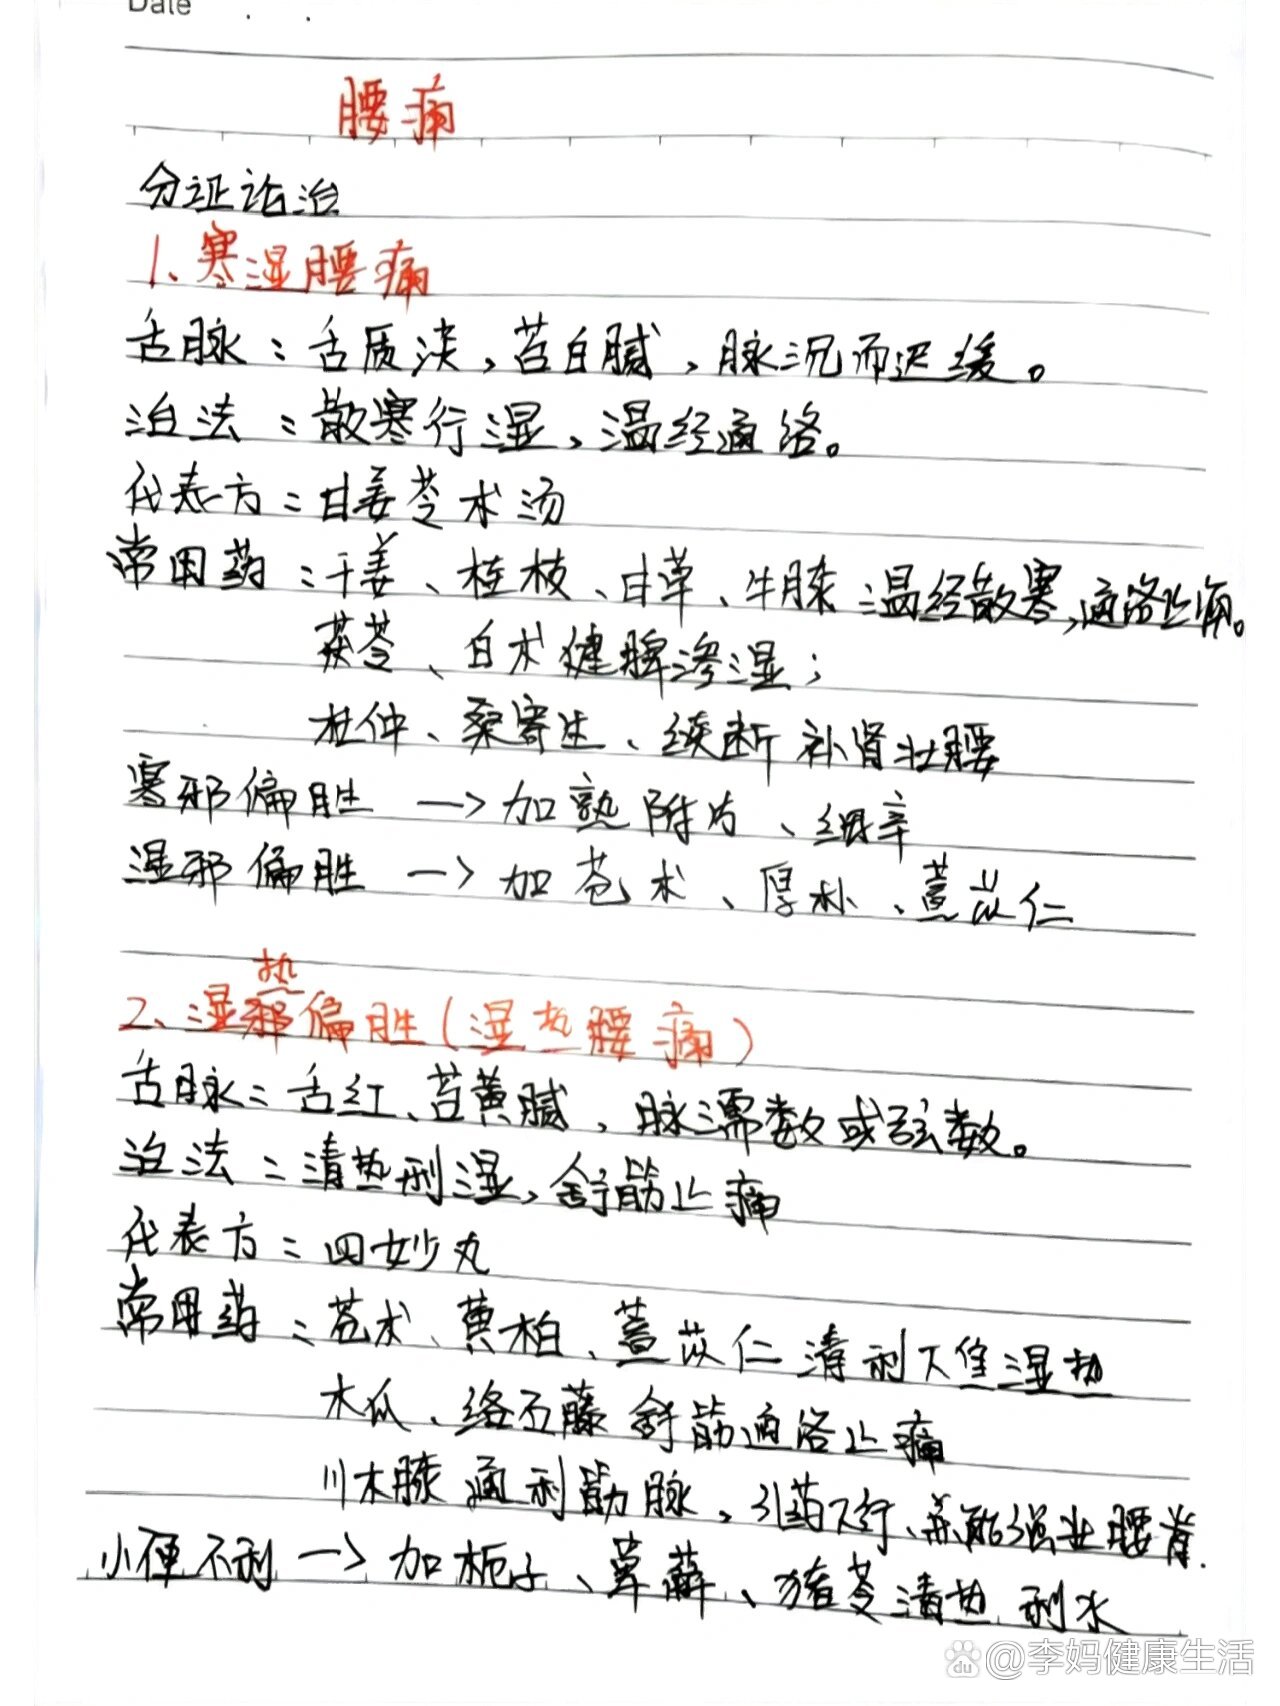 Date
腰痛
分证论治
1、寒湿腰痛
舌脉：舌质淡，苔白腻，脉沉而迟缓。
治法：散寒行湿，温经通络。
代表方：甘姜苓术汤
常用药：干姜、桂枝、甘草、牛膝：温经散寒，通络止痛。
茯苓、白术健脾渗湿；
杜仲、桑寄生、续断补肾壮腰
寒邪偏胜 —> 加熟附片、细辛
湿邪偏胜 —> 加苍术、厚朴、薏苡仁
热
2、湿邪偏胜（湿热腰痛）
舌脉：舌红、苔黄腻，脉濡数或弦数。
治法：清热利湿，舒筋止痛
代表方：四妙丸
常用药：苍术、黄柏、薏苡仁清利下焦湿热
木瓜、络石藤舒筋通络止痛
川木膝通利筋脉，引药下行、兼能强壮腰脊.
小便不利 —> 加栀子、萆薢、猪苓清热利水
Bai du @李妈健康生活